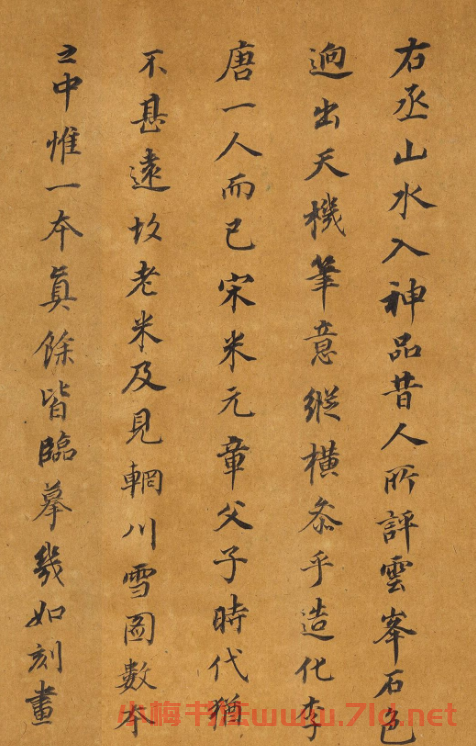 右丞山水入神品昔人所評雲峯石色
迥出天機筆意縱橫叅乎造化李
唐一人而已宋米元章父子時代猶
不甚遠故老米及見輞川雪圖數本
之中惟一本真餘皆臨摹幾如刻畫
小梅书法www.7ld.net